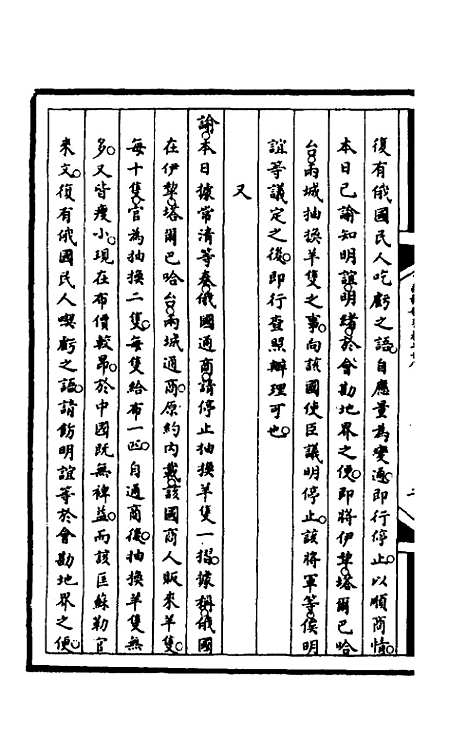 復有俄國民人吃虧之語自應量為變通即行停止以順商情
本日已諭知明誼明緒於會勘地界之便即將伊犂塔爾巴哈
台兩城抽換羊隻之事向該國使臣議明停止該將軍等俟明
誼等議定之後即行查照辦理可也
又
諭本日據常清等奏俄國通商請停止抽換羊隻一摺據稱俄國
在伊犂塔爾巴哈台兩城通商原約內載該國商人販來羊隻
每十隻官為抽換二隻每隻給布一疋自通商後抽換羊隻無
多又皆瘦小現在布價較昂於中國既無裨益而該匡蘇勒官
來文復有俄國民人喫虧之語請飭明誼等於會勘地界之便